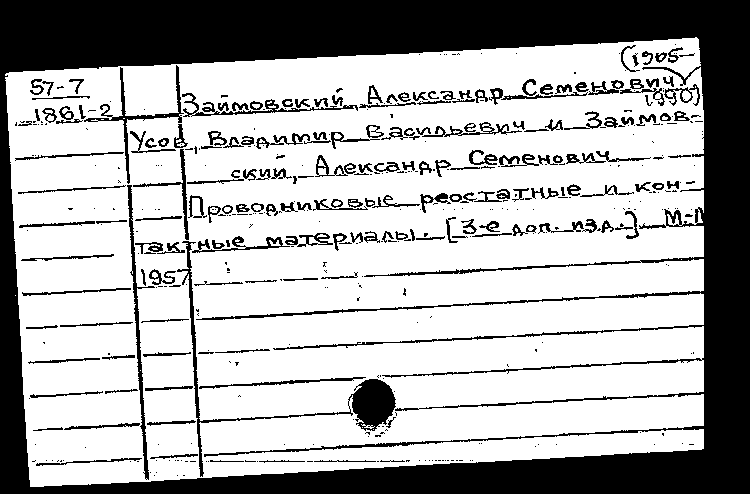 (1905-
57-7
Займовский, Александр Семенович
1990)
1861-2
Усов, Владимир Васильевич и Займов-
ский, Александр Семенович
Проводниковые реостатные и кон-
тактные материалы. [3-е доп. изд.] М-Л
1957